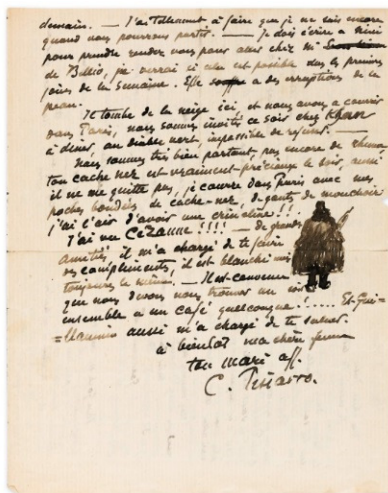 demain. — J'ai tellement à faire que je ne sais encore
quand nous pourrons partir. — Je dois écrire à Mimi
pour prendre rendez vous pour aller chez Mr
de Bellio, je verrai si cela est possible dans les premiers
jours de la semaine. Elle a des erruptions de la
peau.
Il tombe de la neige ici, et nous avons à courir
dans Paris, nous sommes invités ce soir chez
à diner, au diable vert, impossible de refuser. —
Nous sommes très bien portant, pas encore de rhume,
ton cache nez est vraiment précieux le soir, aussi
il ne me quitte pas, je course dans Paris avec mes
poches bondées de cache-nez, de gants, de mouchoir
j'ai l'air d'avoir une crinoline !!!
J'ai vu Cézanne !!!! — de grandes
amitiés, il m'a chargé de te faire
des compliments, il est blanchi mais
toujours le même. — Il est convenu
que nous devons nous trouver un soir
ensemble à un café quelconque !..... Et Gui-
=llaumin aussi m'a chargé de te saluer.
à bientôt ma chère femme
ton mari aff.
C. Pissarro.